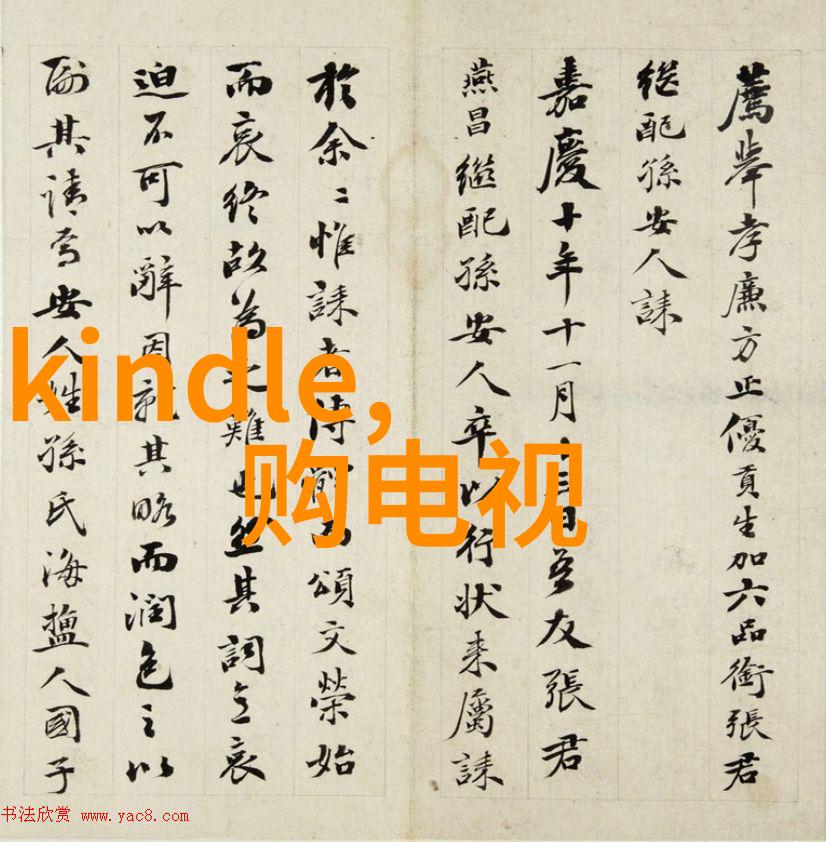 薦舉孝廉方正優貢生加六品銜張君
継配孫安人誄
嘉慶十年十一月十三日吾友張君
燕昌継配孫安人卒以行状来屬誄
於余〻惟誄者傳而頌文榮始
而哀終故為之難也然其詞哀
迫不可以辭因就其略而潤色之以
副其請焉安人姓孫氏海鹽人國子
kindle,
购电视
书法欣赏 www.yac8.com